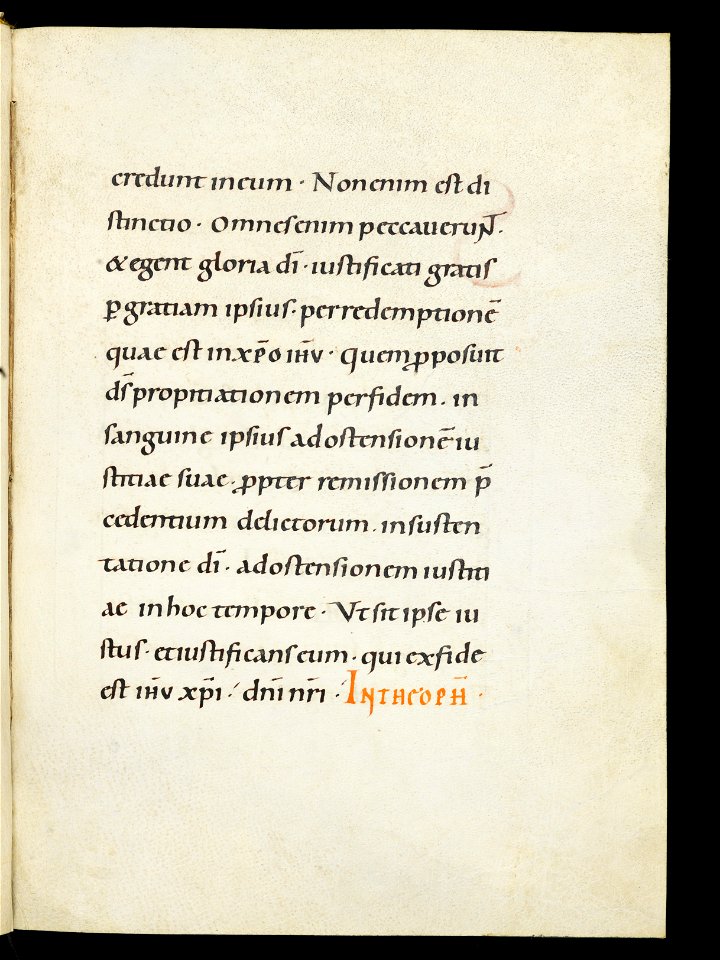 credunt in eum · Non enim est di
stinctio · Omnes enim peccaverunt ·
& egent gloria dī · iustificati gratis
ꝑ gratiam ipsius · per redemptionē
quae est in xp̄o ih̄u · quem ꝓposuit
ds̄ propitiationem per fidem · in
sanguine ipsius ad ostensionē iu
stitiae suae · ꝓpter remissionem p̄
cedentium delictorum · in susten
tatione dī · ad ostensionem iustiti
ae in hoc tempore · Ut sit ipse iu
stus · et iustificans eum · qui ex fide
est ih̄u xp̄i · dn̄i nr̄i · IN THEOPH̄ ·